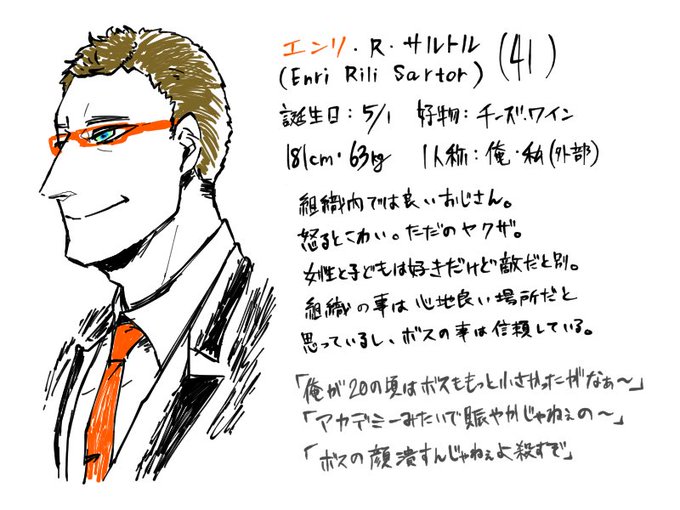 エンリ・R・サルトル (41)
(Enri Rili Sartor)
誕生日:5/1 好物:チーズ・ワイン
181cm・63kg 1人称:俺・私(外部)
組織内では良いおじさん。
怒るとこわい。ただのヤクザ。
女性と子どもは好きだけど敵だと別。
組織の事は心地良い場所だと
思っているし、ボスの事は信頼している。
「俺が20の頃はボスももっと小さかったがなぁ〜」
「アカデミーみたいで賑やかじゃねぇの〜」
「ボスの顔潰すんじゃねぇよ殺すぞ」